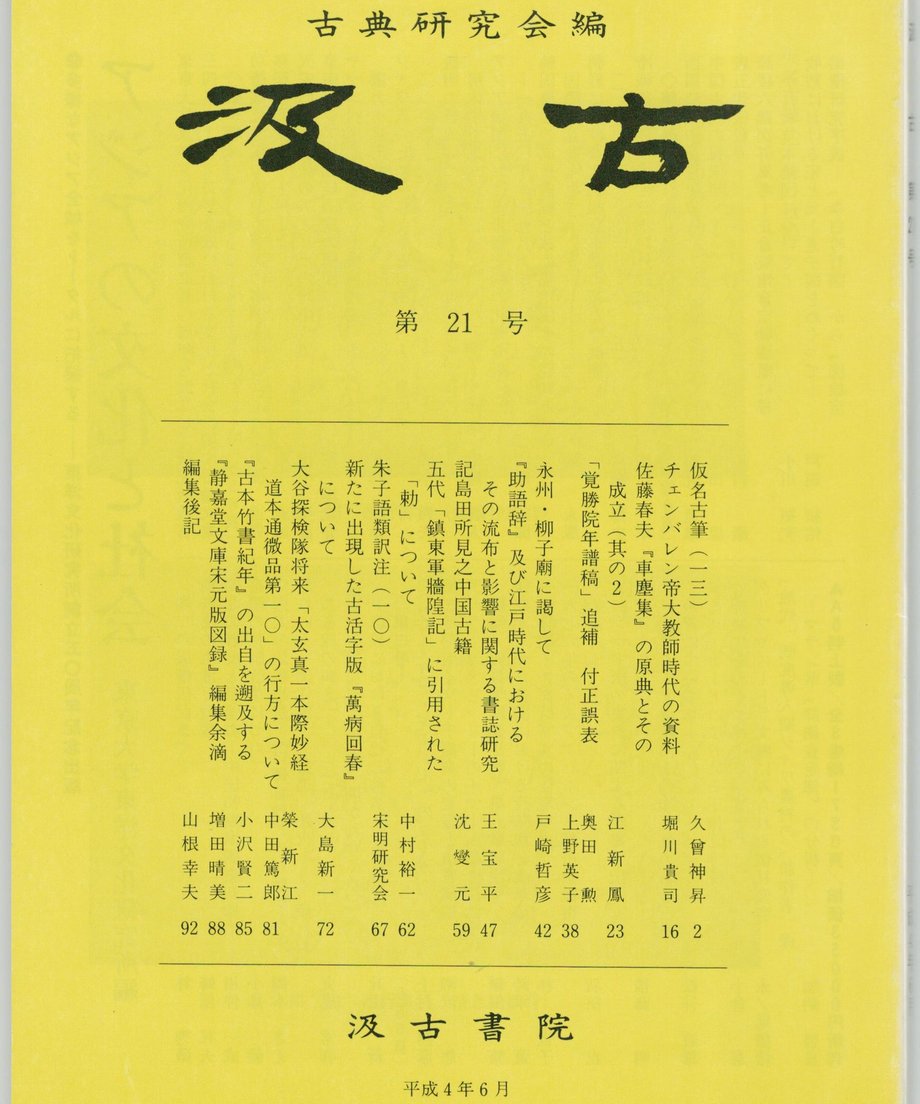 古典研究会編
汲古
第 21 号
仮名古筆（一三） 久曾神昇 2
チェンバレン帝大教師時代の資料 堀川貴司 16
佐藤春夫『車塵集』の原典とその
成立（其の2） 江新鳳 23
「覚勝院年譜稿」追補 付正誤表 奥田勲 上野英子 38
永州・柳子廟に謁して 戸崎哲彦 42
『助語辞』及び江戸時代における
その流布と影響に関する書誌研究 王宝平 47
記島田所見之中国古籍 沈燮元 59
五代「鎮東軍牆隍記」に引用された
「勅」について 中村裕一 62
朱子語類訳注（一〇） 宋明研究会 67
新たに出現した古活字版『萬病回春』
について 大島新一 72
大谷探検隊将来「太玄真一本際妙経
道本通微品第一〇」の行方について 榮新江 中田篤郎 81
『古本竹書紀年』の出自を遡及する 小沢賢二 85
『静嘉堂文庫宋元版図録』編集余滴 増田晴美 88
編集後記 山根幸夫 92
汲古書院
平成4年6月